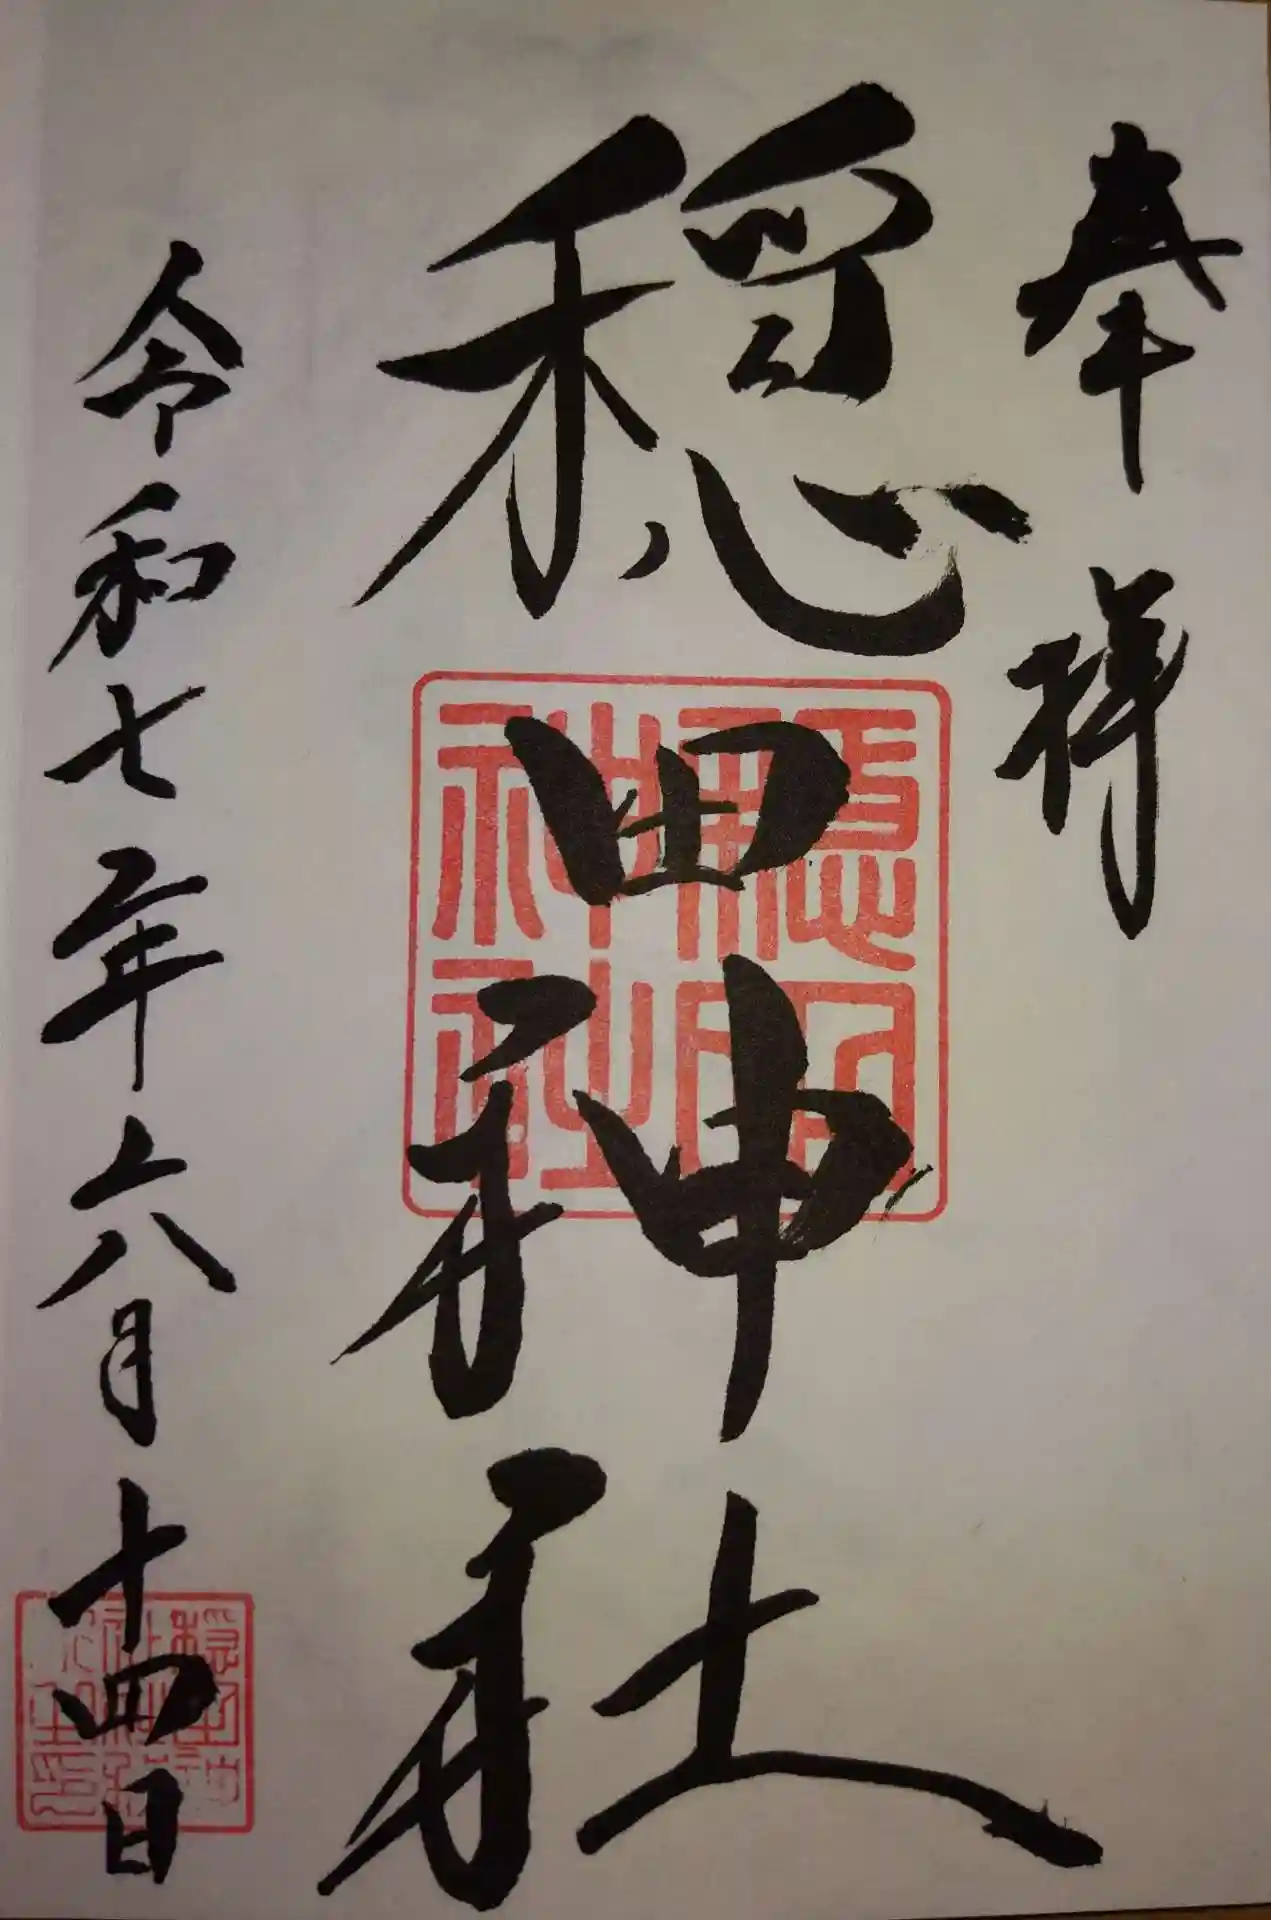 奉拝
穏田神社
令和七年六月十四日
穏田
神社